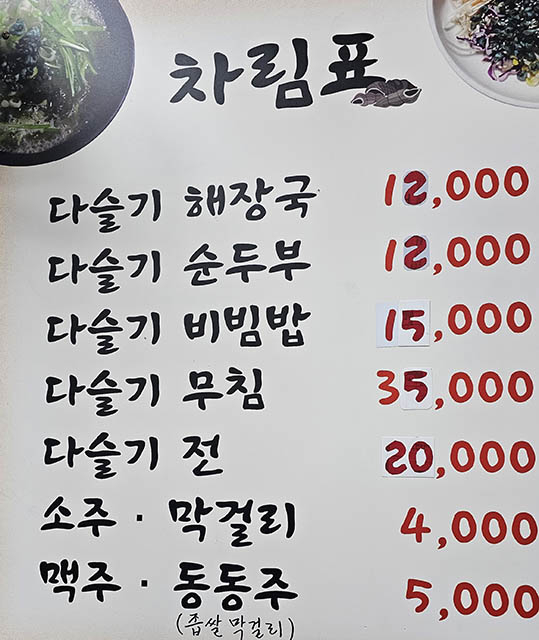 차림표
다슬기 해장국 12,000
다슬기 순두부 12,000
다슬기 비빔밥 15,000
다슬기 무침 35,000
다슬기 전 20,000
소주 · 막걸리 4,000
맥주 · 동동주 5,000
(좁쌀 막걸리)